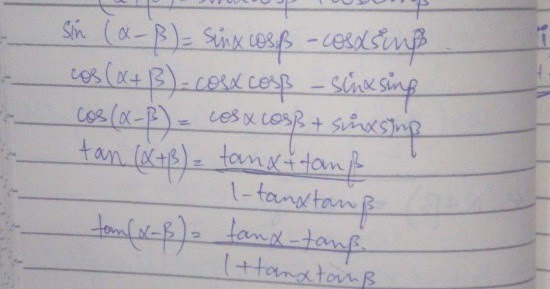 sin (α-β) = sinα cosβ - cosα sinβ
cos(α+β) = cosα cosβ - sinα sinβ
cos(α-β) = cosα cosβ + sinα sinβ
tan (α+β) = tanα + tanβ
1 - tanα tanβ
tan(α-β) = tanα - tanβ
1 + tanα tanβ